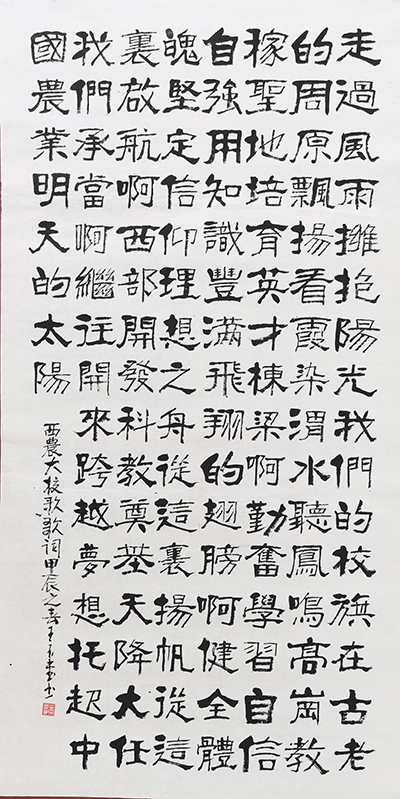 走過風雨擁抱陽光我們的校旗在古老
的周原飄揚看霞染渭水聽鳳鳴高崗教
稼聖地培育英才棟梁啊勤奮學習自信
自強用知識豐滿飛翔的翅膀啊健全體
魄堅定信仰理想之舟從這裏揚帆從這
裏啟航啊西部開發科教奠基天降大任
我們承當啊繼往開來跨越夢想托起中
國農業明天的太陽
西農大校歌歌詞甲辰之春王